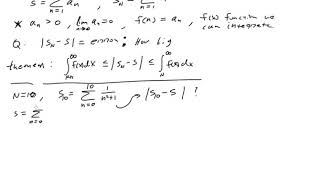 S = ∑_{n=1} a_n n=1
* a_n > 0, lim_{n→∞} a_n = 0, f(n) = a_n, f(x) function we can integrate
Q: |S_N - S| = error: How big
theorem: ∫^∞ f(x)dx ≤ |S_N - S| ≤ ∫_N^∞ f(x)dx
N=10, S_10 = ∑_{n=0}^{10} 1/(n²+1) |S_10 - S| ?
S = ∑_{n=0}